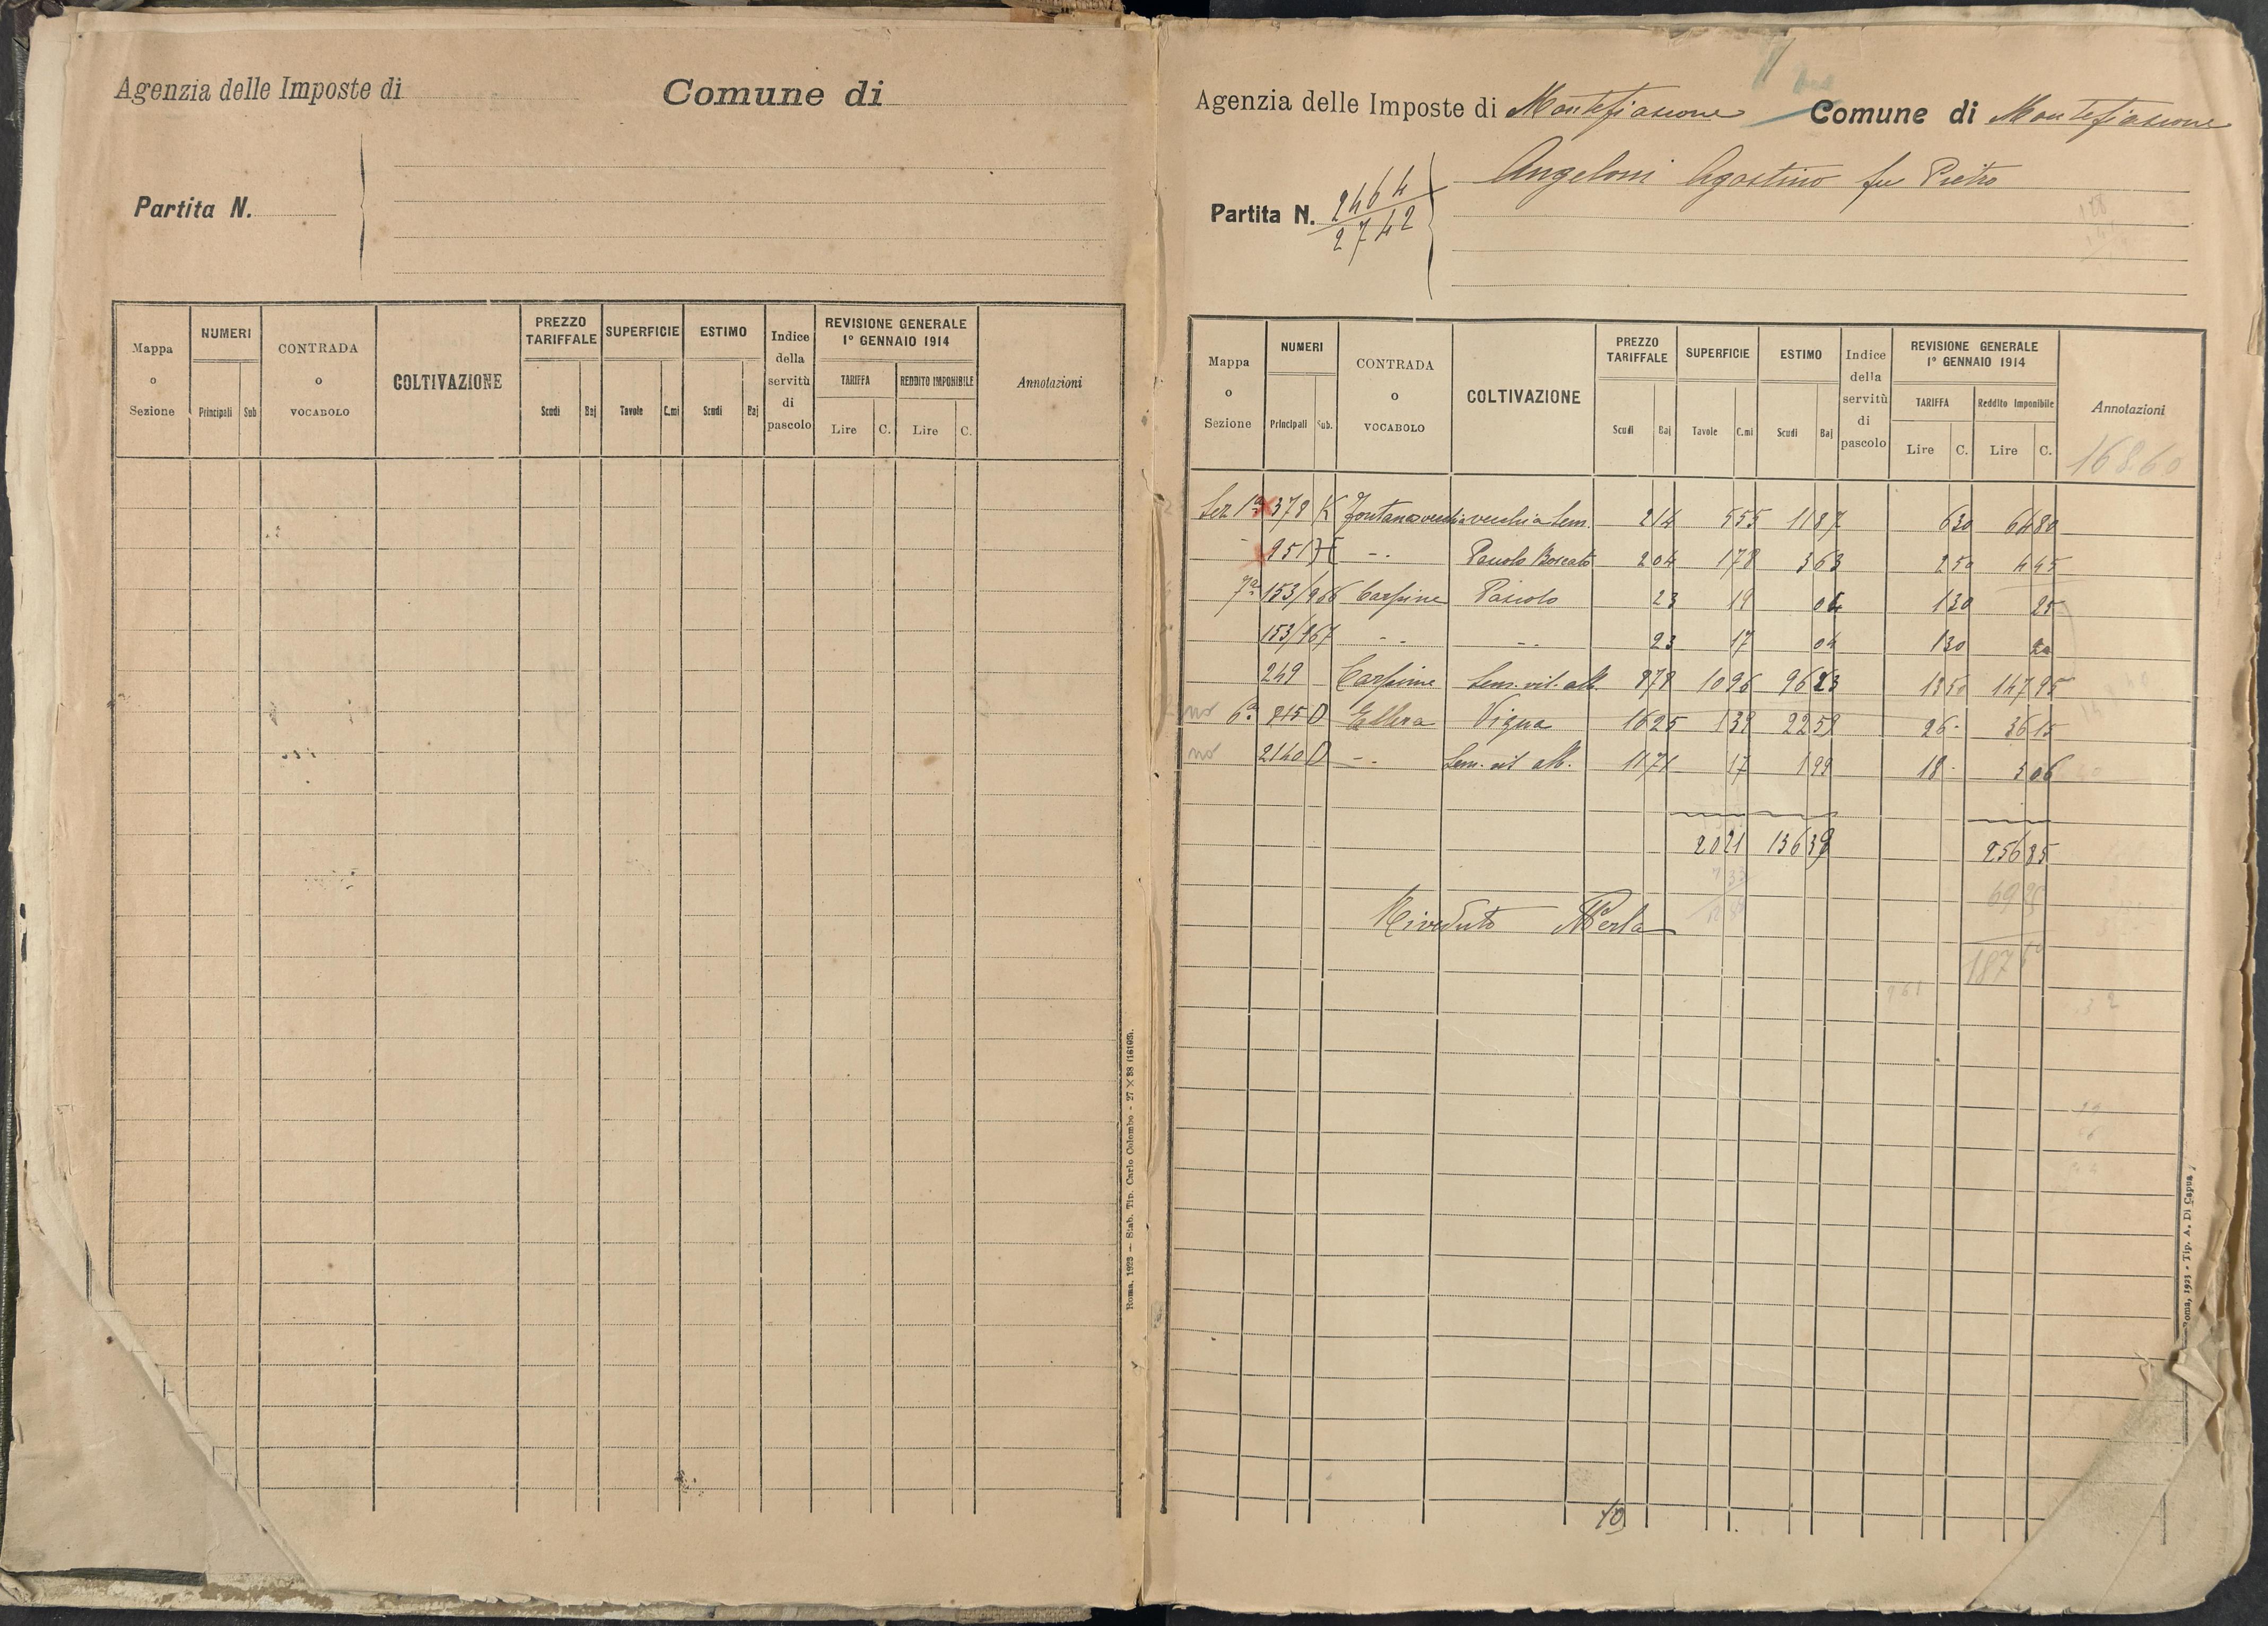 Agenzia delle Imposte di Comune di
Partita N.
Mappa o Sezione NUMERI Principali Sub CONTRADA o VOCABOLO COLTIVAZIONE PREZZO TARIFFALE Scudi Baj SUPERFICIE Tavole C.mi ESTIMO Scudi Baj Indice della servitù di pascolo REVISIONE GENERALE 1º GENNAIO 1914 TARIFFA Lire C. REDDITO IMPONIBILE Lire C. Annotazioni
Roma, 1923 — Stab. Tip. Carlo Colombo - 27 × 38 (16193).
Agenzia delle Imposte di Montefiascone Comune di Montefiascone
Angeloni Agostino fu Pietro
Partita N. 2464
2742
Mappa o Sezione NUMERI Principali Sub. CONTRADA o VOCABOLO COLTIVAZIONE PREZZO TARIFFALE Scudi Baj SUPERFICIE Tavole C.mi ESTIMO Scudi Baj Indice della servitù di pascolo REVISIONE GENERALE 1º GENNAIO 1914 TARIFFA Lire C. Reddito Imponibile Lire C. Annotazioni
168.60
Sez 1ª 378 K Sem. 2 14 5 55 11 87 6 30 64 80
951 -.- Pascolo Boscato 2 04 1 78 3 63 2 50 4 45
7ª 153/966 Carpine Pascolo 23 19 04 1 30 25
153/967 -.- -.- 23 17 04 1 30 20
249 Carpine Sem. vit. alb. 8 78 10 96 96 23 13 50 147 95
no 6ª 815 D Ellera Vigna 16 25 1 39 22 59 26 - 36 15
no 2140 D -.- Sem. vit alb. 11 71 17 1 99 18 - 3 06
20 21 136 39 256 85
69 25
187 60
Riveduto Merla
10
Roma, 1923 - Tip. A. Di Capua